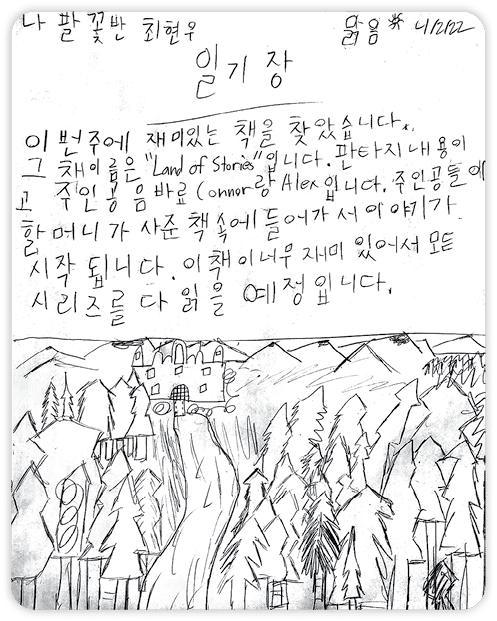 나팔꽃반 최현우 맑음 4/2/22
일기장
이번주에 재미있는 책을 찾았습니다.
그 책이름은 "Land of Stories"입니다. 판타지 내용이
고 주인공음 바료 Connor랑 Alex입니다. 주인공들에
할머니가 사준 책속에 들어가서 이야기가
시작 됩니다. 이 책이 너무 재미 있어서 모든
시리즈를 다 읽을 예정입니다.